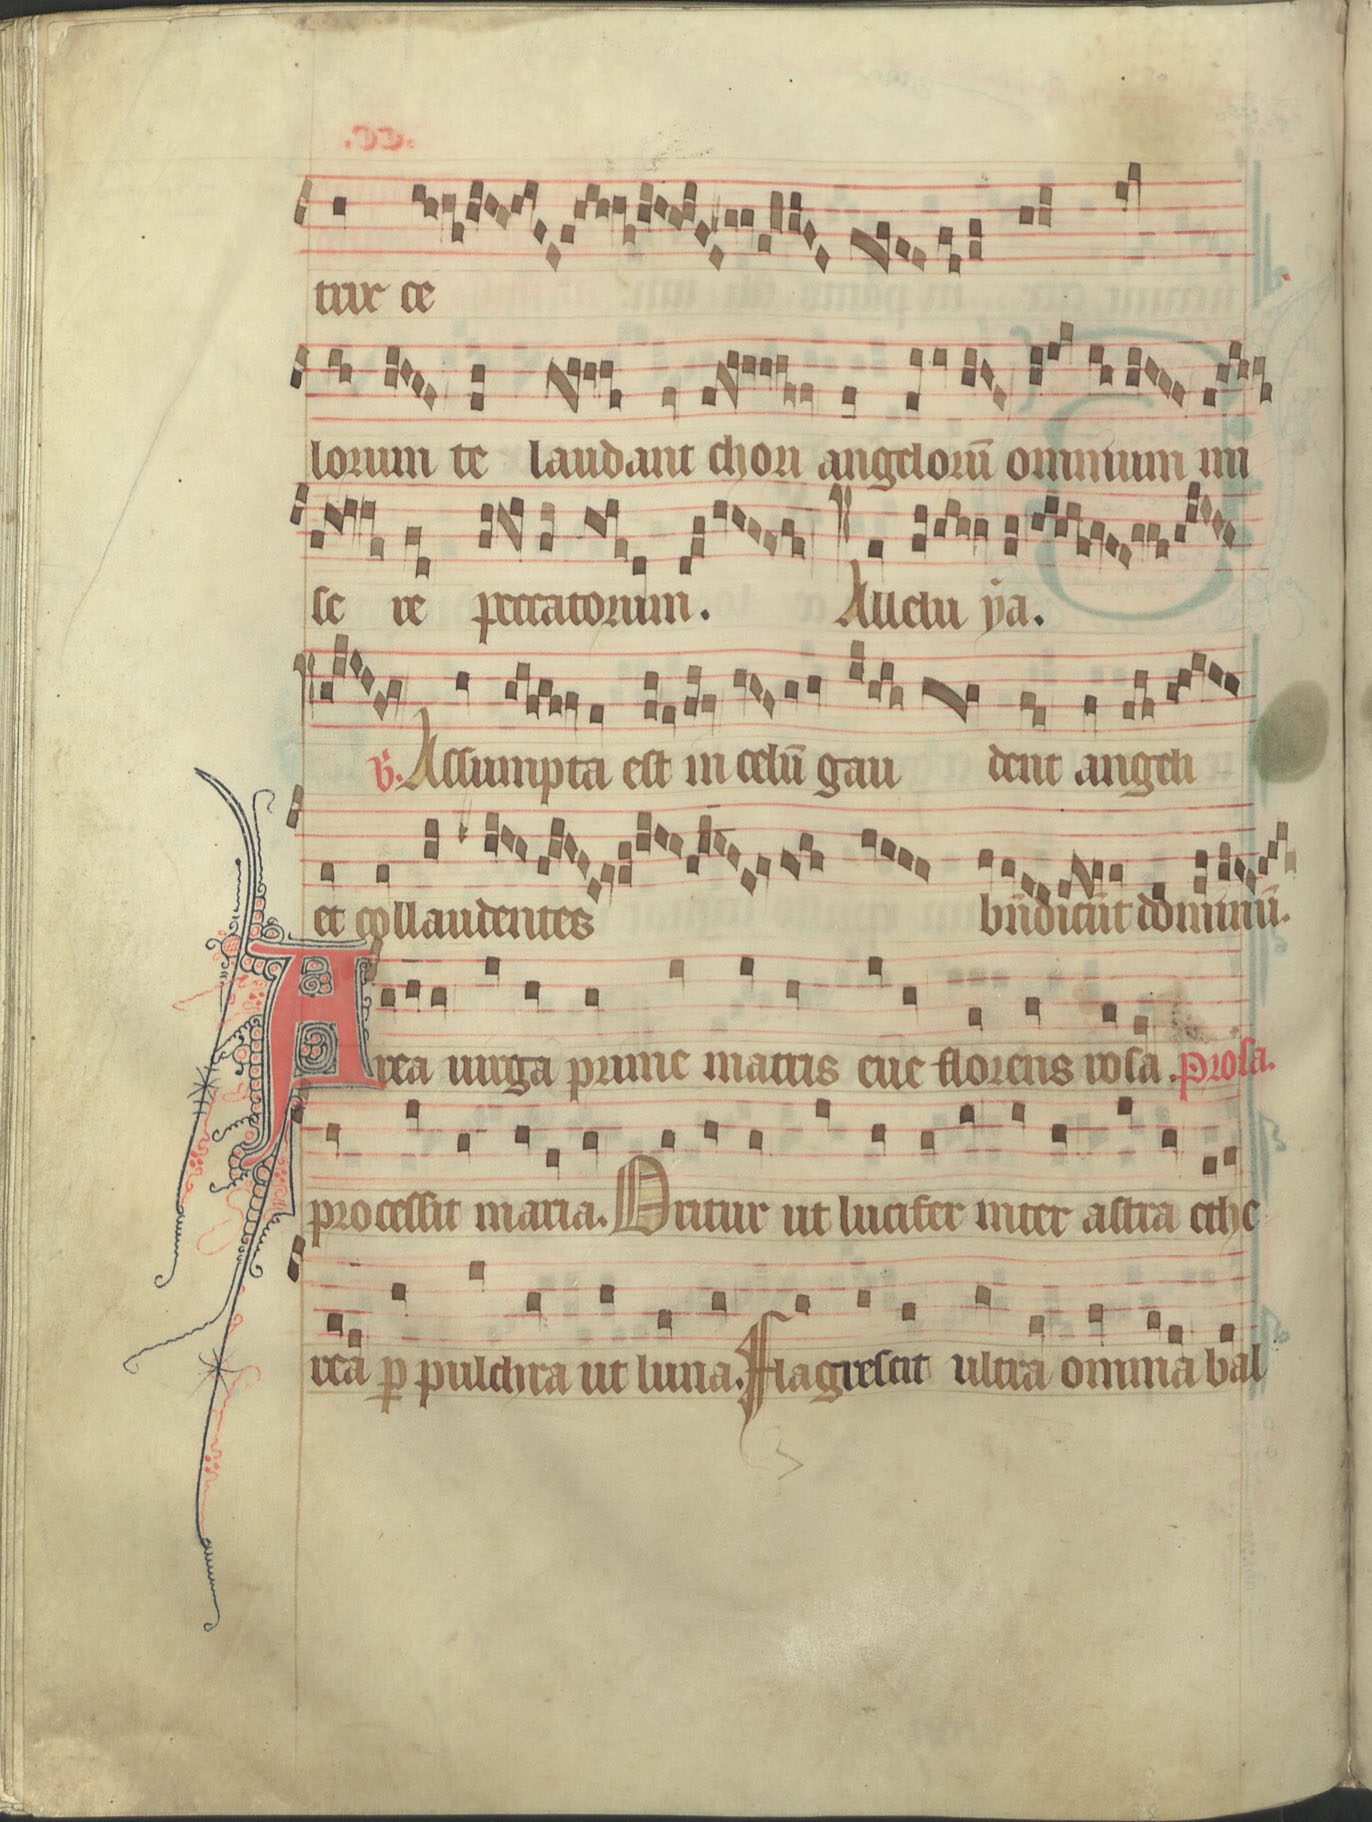 .cc.
trix ce
lorum te laudant chori angelorū omnium mi
se re peccatorum. Alleluya.
v̄. Assumpta est in celū gau dent angeli
et collaudentes bn̄dicūt dominū.
Area uirga prime matris eue florens rosa .Prosa.
processit maria. Oritur ut lucifer inter astra ethe
rea ꝑ pulchra ut luna. Flagrescit ultra omnia bal